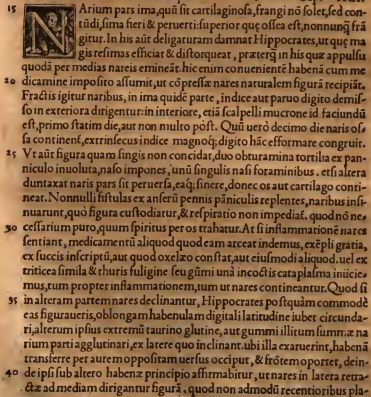 15 NArium pars ima, quũ sit cartilaginosa, frangi nõ solet, sed con-
tũdi, sima fieri & peruerti: superior quę ossea est, nonnunq̃ frã
gitur. In his aũt deligaturam damnat Hippocrates, ut quę ma
gis resimas efficiat & distorqueat, pręterq̃ in his quæ appulsu
quodã per medias nareis emineãt. hic enim conuenientẽ habenã cum me
20 dicamine imposito assumit, ut cõpressæ nares naturalem figurã recipiãt.
Fractis igitur naribus, in ima quidẽ parte, indice aut paruo digito demis-
so in exteriora dirigentur: in interiore, etiã scalpelli mucrone id faciundũ
est, primo statim die, aut non multo põst. Quũ uerò decimo die naris os-
sa continent, extrinsecus indice magnoq; digito hæc efformare congruit.
25 Vt aũt figura quam fingis non concidat, duo obturamina tortilia ex pan-
niculo inuoluta, naso impones, unũ singulis nasi foraminibus. etsi altera
duntaxat naris pars sit peruersa, eaq; sinere, donec os aut cartilago conti-
neat. Nonnulli fistulas ex anserũ pennis pãniculis replentes, naribus insi-
nuarunt, quo figura custodiatur, & respiratio non impediat. quod nõ ne-
30 cessarium puro, quum spiritus per os trahatur. At si inflammationẽ nares
sentiant, medicamentũ aliquod quod eam arceat indemus, exẽpli gratia,
ex succis inscriptũ, aut quod oxelæo constat, aut eiusmodi aliquod. uel ex
triticea simila & thuris fuligine seu gũmi unà incoctis cataplasma inũcie-
mus, tum propter inflammationem, tum ut nares contineantur. Quod si
35 in alteram partem nares declinantur, Hippocrates postquàm commodè
eas figuraueris, oblongam habenulam digitali latitudine iubet circunda-
ri, alterum ipsius extremũ taurino glutine, aut gummi illitum summæ na
rium parti agglutinari, ex latere quo inclinant. ubi illa exaruerint, habenã
transferre per aurem oppositam uersus occiput, & frõtem oportet, dein-
40 de ipsi sub altero habenæ principio affirmabitur, ut nares in latera retra-
ctæ ad mediam dirigantur figurã. quod non admodũ recentioribus pla-